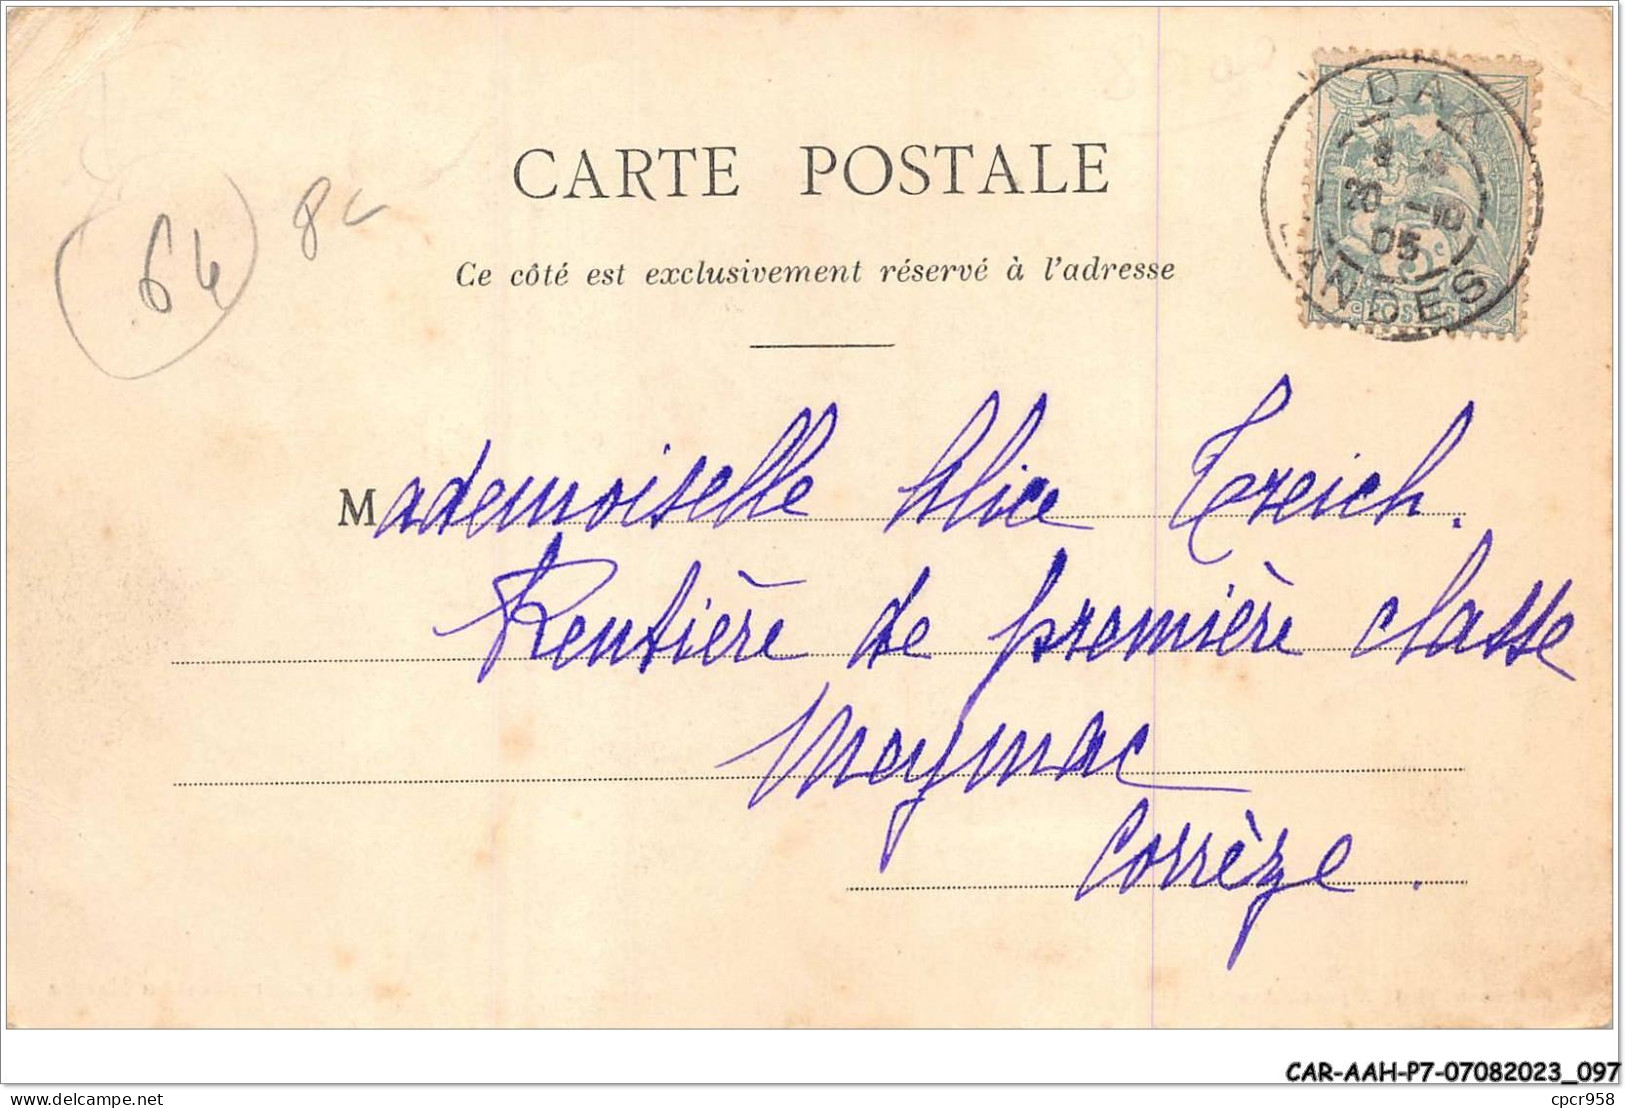 CARTE POSTALE
DAX
20 -10
05
LANDES
POSTES
64
8c
Ce côté est exclusivement réservé à l'adresse
Mademoiselle Alice Treich.
Rentière de première classe
Meymac
Corrèze.
CAR-AAH-P7-07082023_097
www.delcampe.net
cpcr958